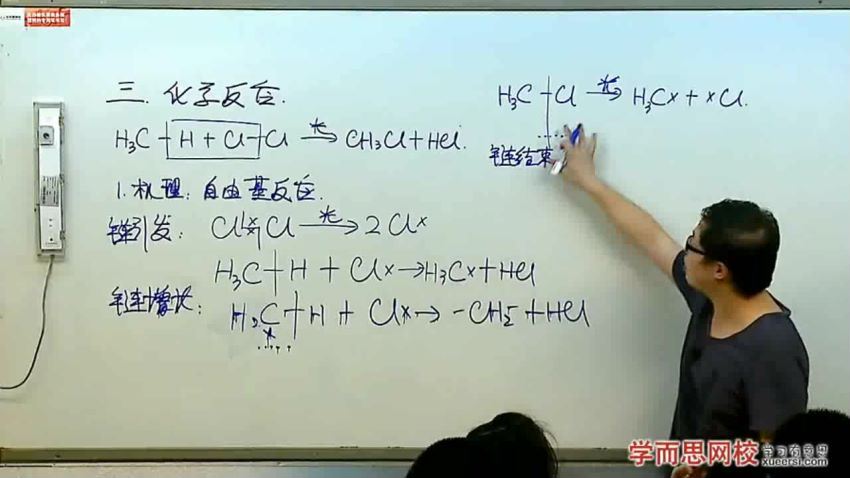 三.化学反应.
H₃C-H+Cl-Cl 光→ CH₃Cl+HCl.
1.机理:自由基反应.
链引发: Cl×Cl 光→ 2Cl×
H₃C-H + Cl× → H₃C×+HCl
链增长: H₃C-H + Cl× → -CH₂- + HCl
H₃C-Cl 光→ H₃C×+×Cl.
链结束
学而思网校
学习有意思
xueersi.com